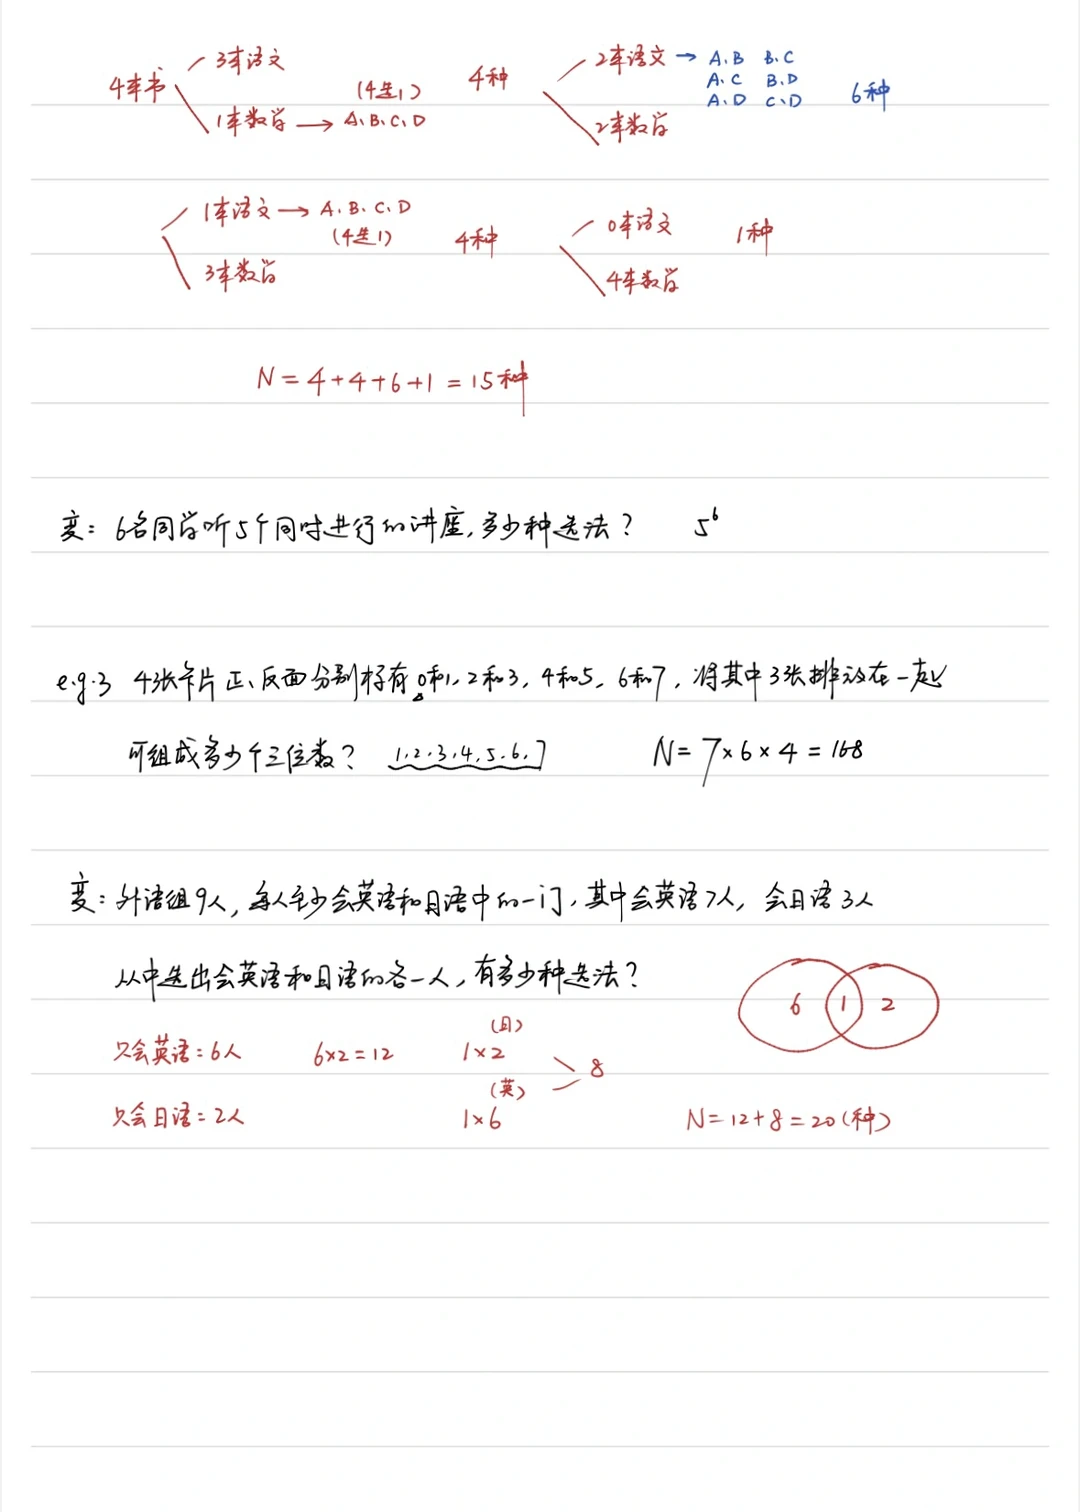 4本书
3本语文
1本数学 → A、B、C、D
(4选1)
4种
2本语文 → A、B B、C
A、C B、D
A、D C、D
6种
2本数学
1本语文 → A、B、C、D
(4选1)
3本数学
4种
0本语文
4本数学
1种
N = 4+4+6+1 = 15种
变：6名同学听5个同时进行的讲座,多少种选法？ 5⁶
e.g.3 4张卡片正、反面分别标有0和1、2和3、4和5、6和7，将其中3张排放在一起
可组成多少个三位数？ 1.2.3.4.5.6.7 N = 7×6×4 = 168
变：外语组9人，每人至少会英语和日语中的一门，其中会英语7人，会日语3人
从中选出会英语和日语的各一人，有多少种选法？
6 1 2
只会英语：6人 6×2=12 (日)
1×2
8
只会日语：2人 (英)
1×6
N=12+8=20(种)